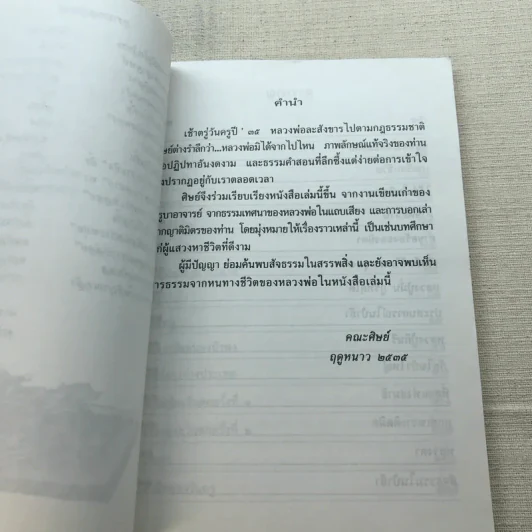 คำนำ
เช้าตรู่วันครูปี ' ๓๕ หลวงพ่อละสังขารไปตามกฎธรรมชาติ
ษย์ต่างรำลึกว่า...หลวงพ่อมิได้จากไปไหน ภาพลักษณ์แท้จริงของท่าน
อปฏิปทาอันงดงาม และธรรมคำสอนที่ลึกซึ้งแต่ง่ายต่อการเข้าใจ
งปรากฏอยู่กับเราตลอดเวลา
ศิษย์จึงร่วมเรียบเรียงหนังสือเล่มนี้ขึ้น จากงานเขียนเก่าของ
รูบาอาจารย์ จากธรรมเทศนาของหลวงพ่อในแถบเสียง และการบอกเล่า
ากญาติมิตรของท่าน โดยมุ่งหมายให้เรื่องราวเหล่านี้ เป็นเช่นบทศึกษา
ก่ผู้แสวงหาชีวิตที่ดีงาม
ผู้มีปัญญา ย่อมค้นพบสัจธรรมในสรรพสิ่ง และยังอาจพบเห็น
ารธรรมจากหนทางชีวิตของหลวงพ่อในหนังสือเล่มนี้
คณะศิษย์
ฤดูหนาว ๒๕๓๕